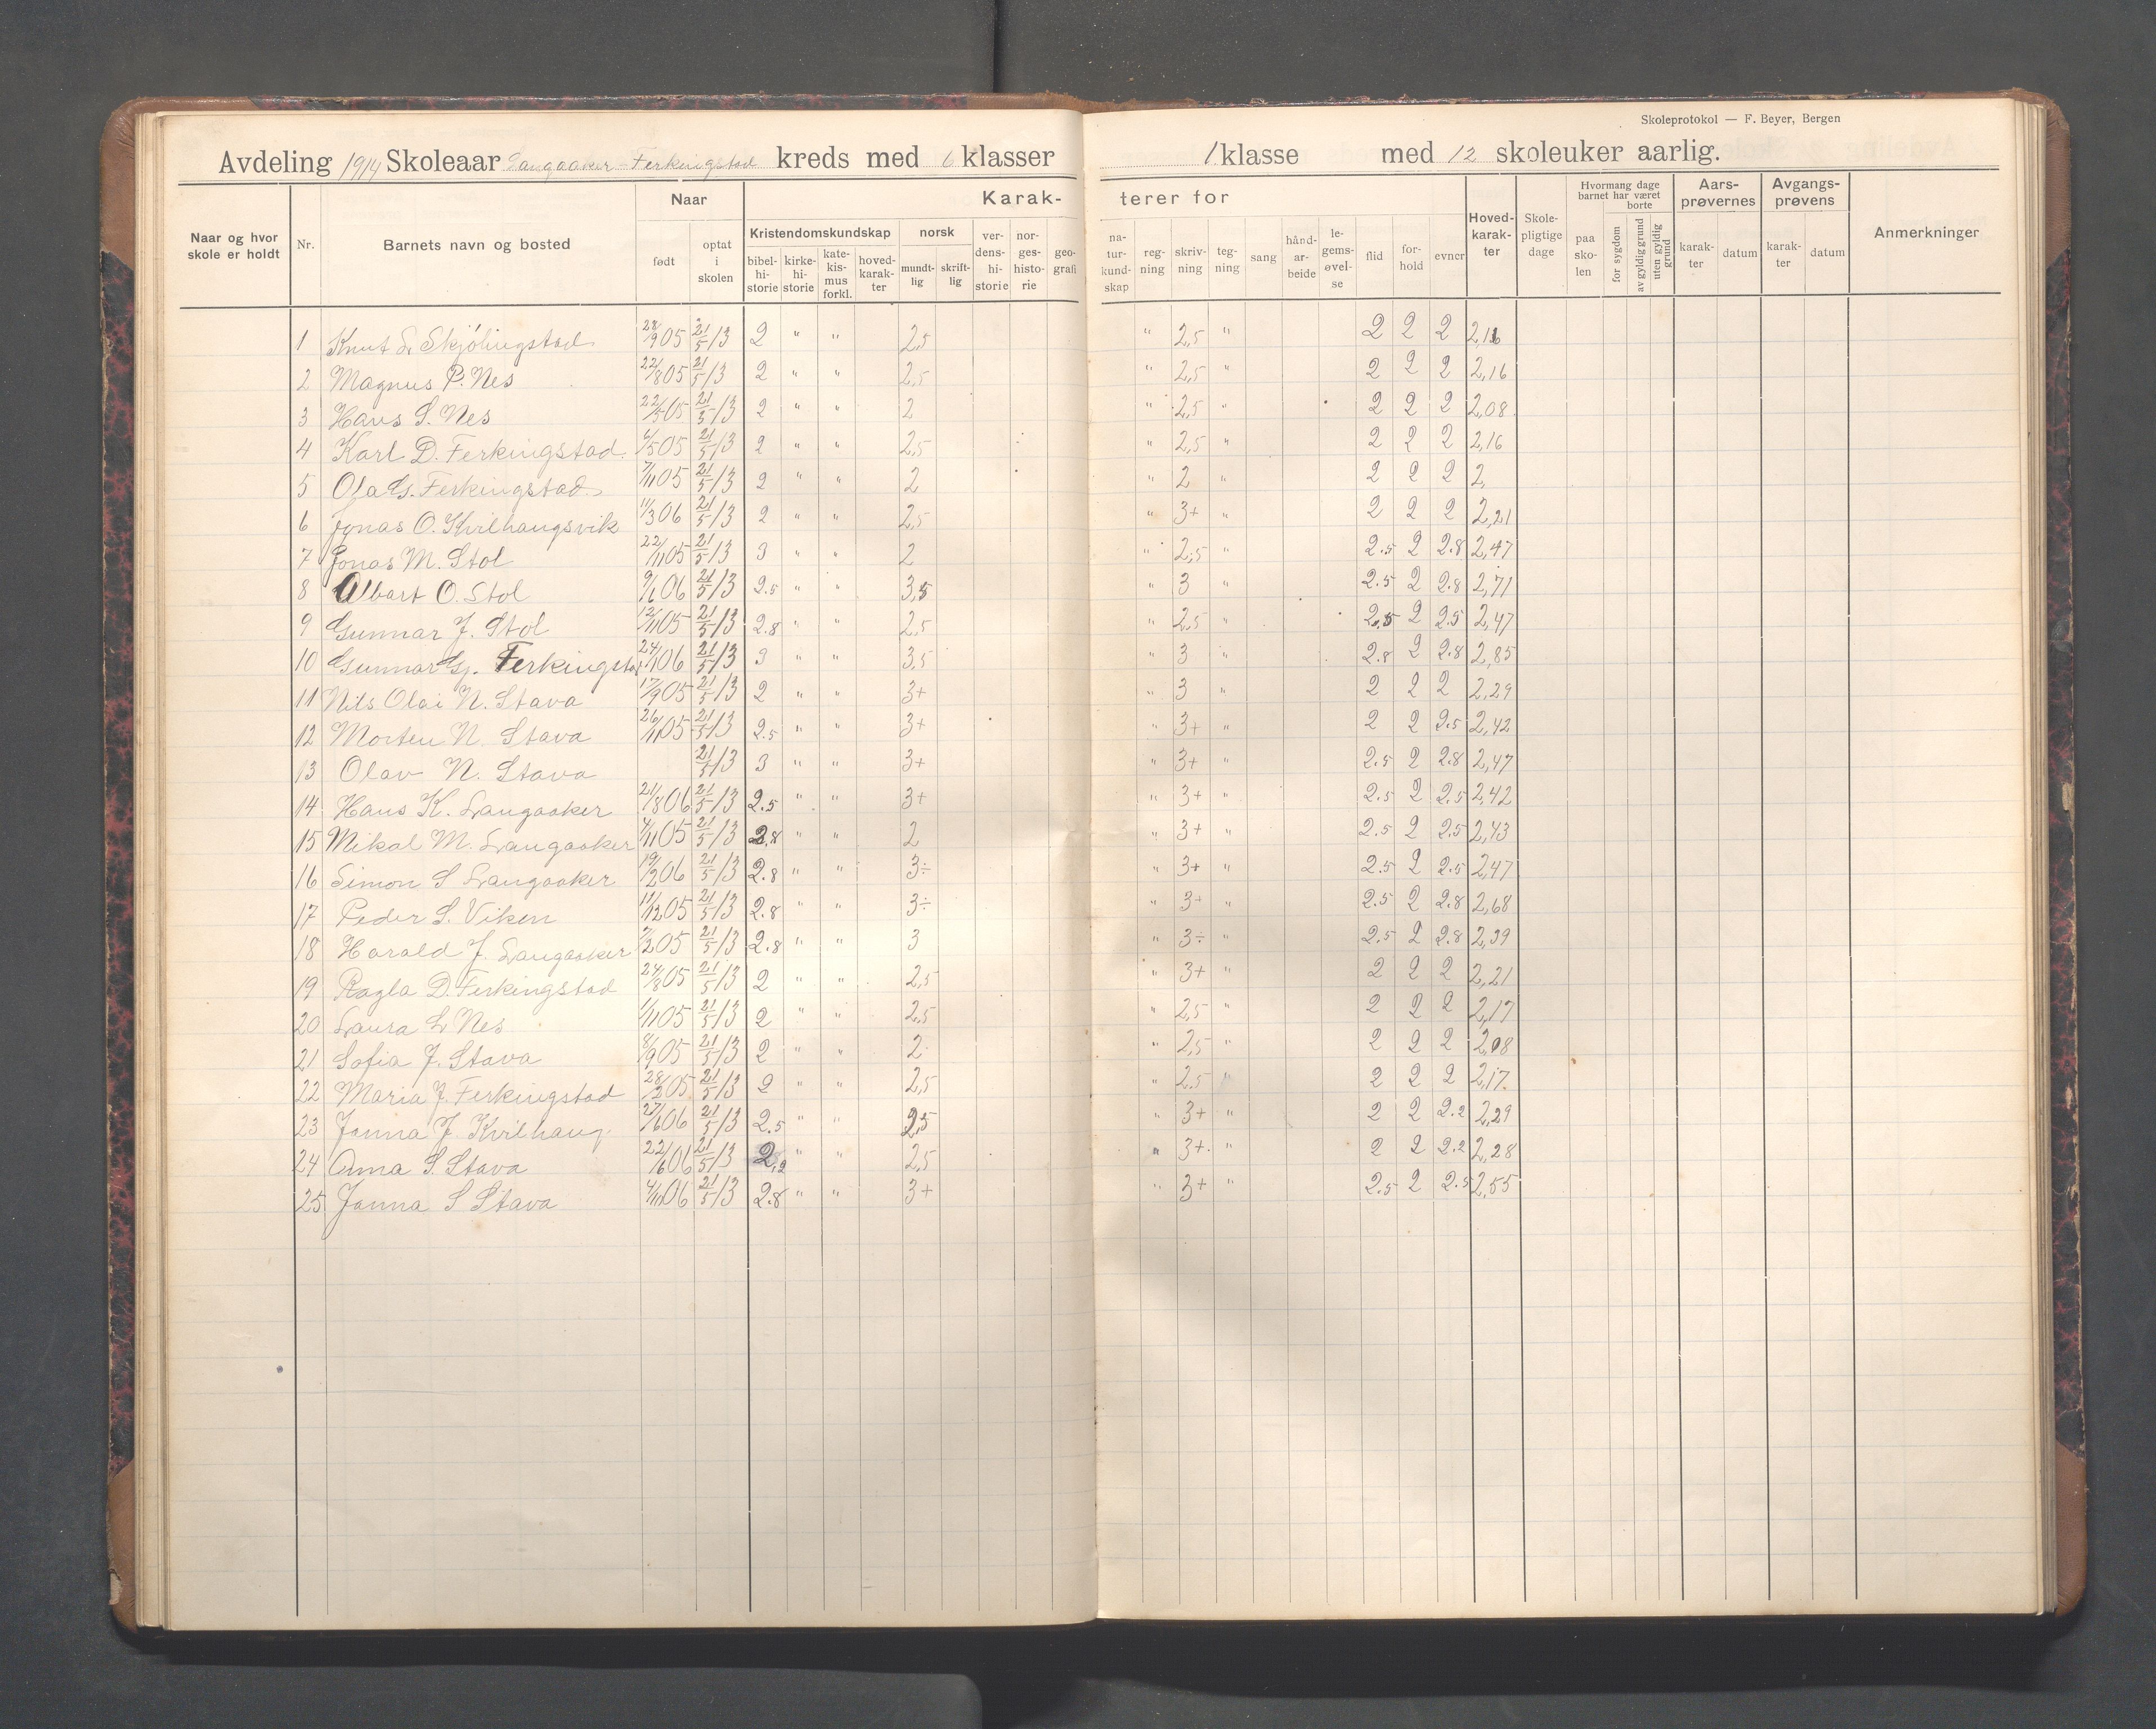 Skoleprotokol — F. Beyer, Bergen
Avdeling 1914 Skoleaar Langaaker-Ferkingstad kreds med 6 klasser 1 klasse med 12 skoleuker aarlig.
Naar og hvor skole er holdt Nr. Barnets navn og bosted Naar født optat i skolen Karakterer for Kristendomskundskap bibelhistorie kirkehistorie katekismus forkl. hovedkarakter norsk mundtlig skriftlig verdenshistorie norgeshistorie geografi naturkundskap regning skrivning tegning sang håndarbeide legemsøvelse flid forhold evner Hovedkarakter Skolepligtige dage Hvormang dage barnet har været paa skolen borte for sygdom av gyldig grund uten gyldig grund Aarsprøvernes karakter datum Avgangsprøvens karakter datum Anmerkninger
1 Knut L. Skjölingstad 28/9 05 21/5 13 2 " " 2,5 " 2,5 " 2 2 2 2,16
2 Magnus P. Nes 22/8 05 21/5 13 2 " " 2,5 " 2,5 " 2 2 2 2,16
3 Hans S. Nes 22/5 05 21/5 13 2 " " 2 " 2,5 " 2 2 2 2,08
4 Karl D. Ferkingstad 6/5 05 21/5 13 2 " " 2,5 " 2,5 " 2 2 2 2,16
5 Ola G. Ferkingstad 7/11 05 21/5 13 2 " " 2 " 2 " 2 2 2 2,
6 Jonas O. Kvilhaugsvik 11/3 06 21/5 13 2 " " 2,5 " 3+ " 2 2 2 2,21
7 Jonas M. Stol 22/11 05 21/5 13 3 " " 2 " 2,5 " 2.5 2 2.8 2,47
8 Albart O. Stol 9/1 06 21/5 13 2.5 " " 3,5 " 3 " 2.5 2 2.8 2,71
9 Gunnar J. Stol 12/11 05 21/5 13 2.8 " " 2,5 " 2,5 " 2,5 2 2.5 2,47
10 Gunnar Gj. Ferkingstad 24/1 06 21/5 13 3 " " 3,5 " 3 " 2.8 2 2.8 2,85
11 Nils Olai N. Stava 17/9 05 21/5 13 2 " " 3+ " 3 " 2 2 2 2,29
12 Morten N. Stava 26/11 05 21/5 13 2.5 " " 3+ " 3+ " 2 2 2.5 2,42
13 Olav N. Stava 21/5 13 3 " " 3+ " 3+ " 2.5 2 2.8 2,47
14 Hans K. Langaaker 21/8 06 21/5 13 2.5 " " 3+ " 3+ " 2.5 2 2.5 2,42
15 Mikal M. Langaaker 4/11 05 21/5 13 2,8 " " 2 " 3+ " 2.5 2 2.5 2,43
16 Simon S Langaaker 19/2 06 21/5 13 2.8 " " 3÷ " 3+ " 2.5 2 2.5 2,47
17 Peder S. Viken 11/12 05 21/5 13 2.8 " " 3÷ " 3+ " 2.5 2 2.8 2,68
18 Harald J. Langaaker 7/2 05 21/5 13 2.8 " " 3 " 3÷ " 2.5 2 2.8 2,39
19 Ragla D. Ferkingstad 24/8 05 21/5 13 2 " " 2,5 " 3+ " 2 2 2 2,21
20 Laura L Nes 1/11 05 21/5 13 2 " " 2,5 " 2,5 " 2 2 2 2,17
21 Sofia J. Stava 8/9 05 21/5 13 2 " " 2 " 2,5 " 2 2 2 2,08
22 Maria J. Ferkingstad 28/2 05 21/5 13 2 " " 2,5 " 2.5 " 2 2 2 2,17
23 Janna J. Kvilhaug 27/6 06 21/5 13 2.5 " " 2,5 " 3+ " 2 2 2.2 2,29
24 Anna S. Stava 22/6 06 21/5 13 2,2 " " 2,5 " 3+ " 2 2 2.2 2,28
25 Janna S Stava 4/11 06 21/5 13 2.8 " " 3+ " 3+ " 2.5 2 2.5 2,55